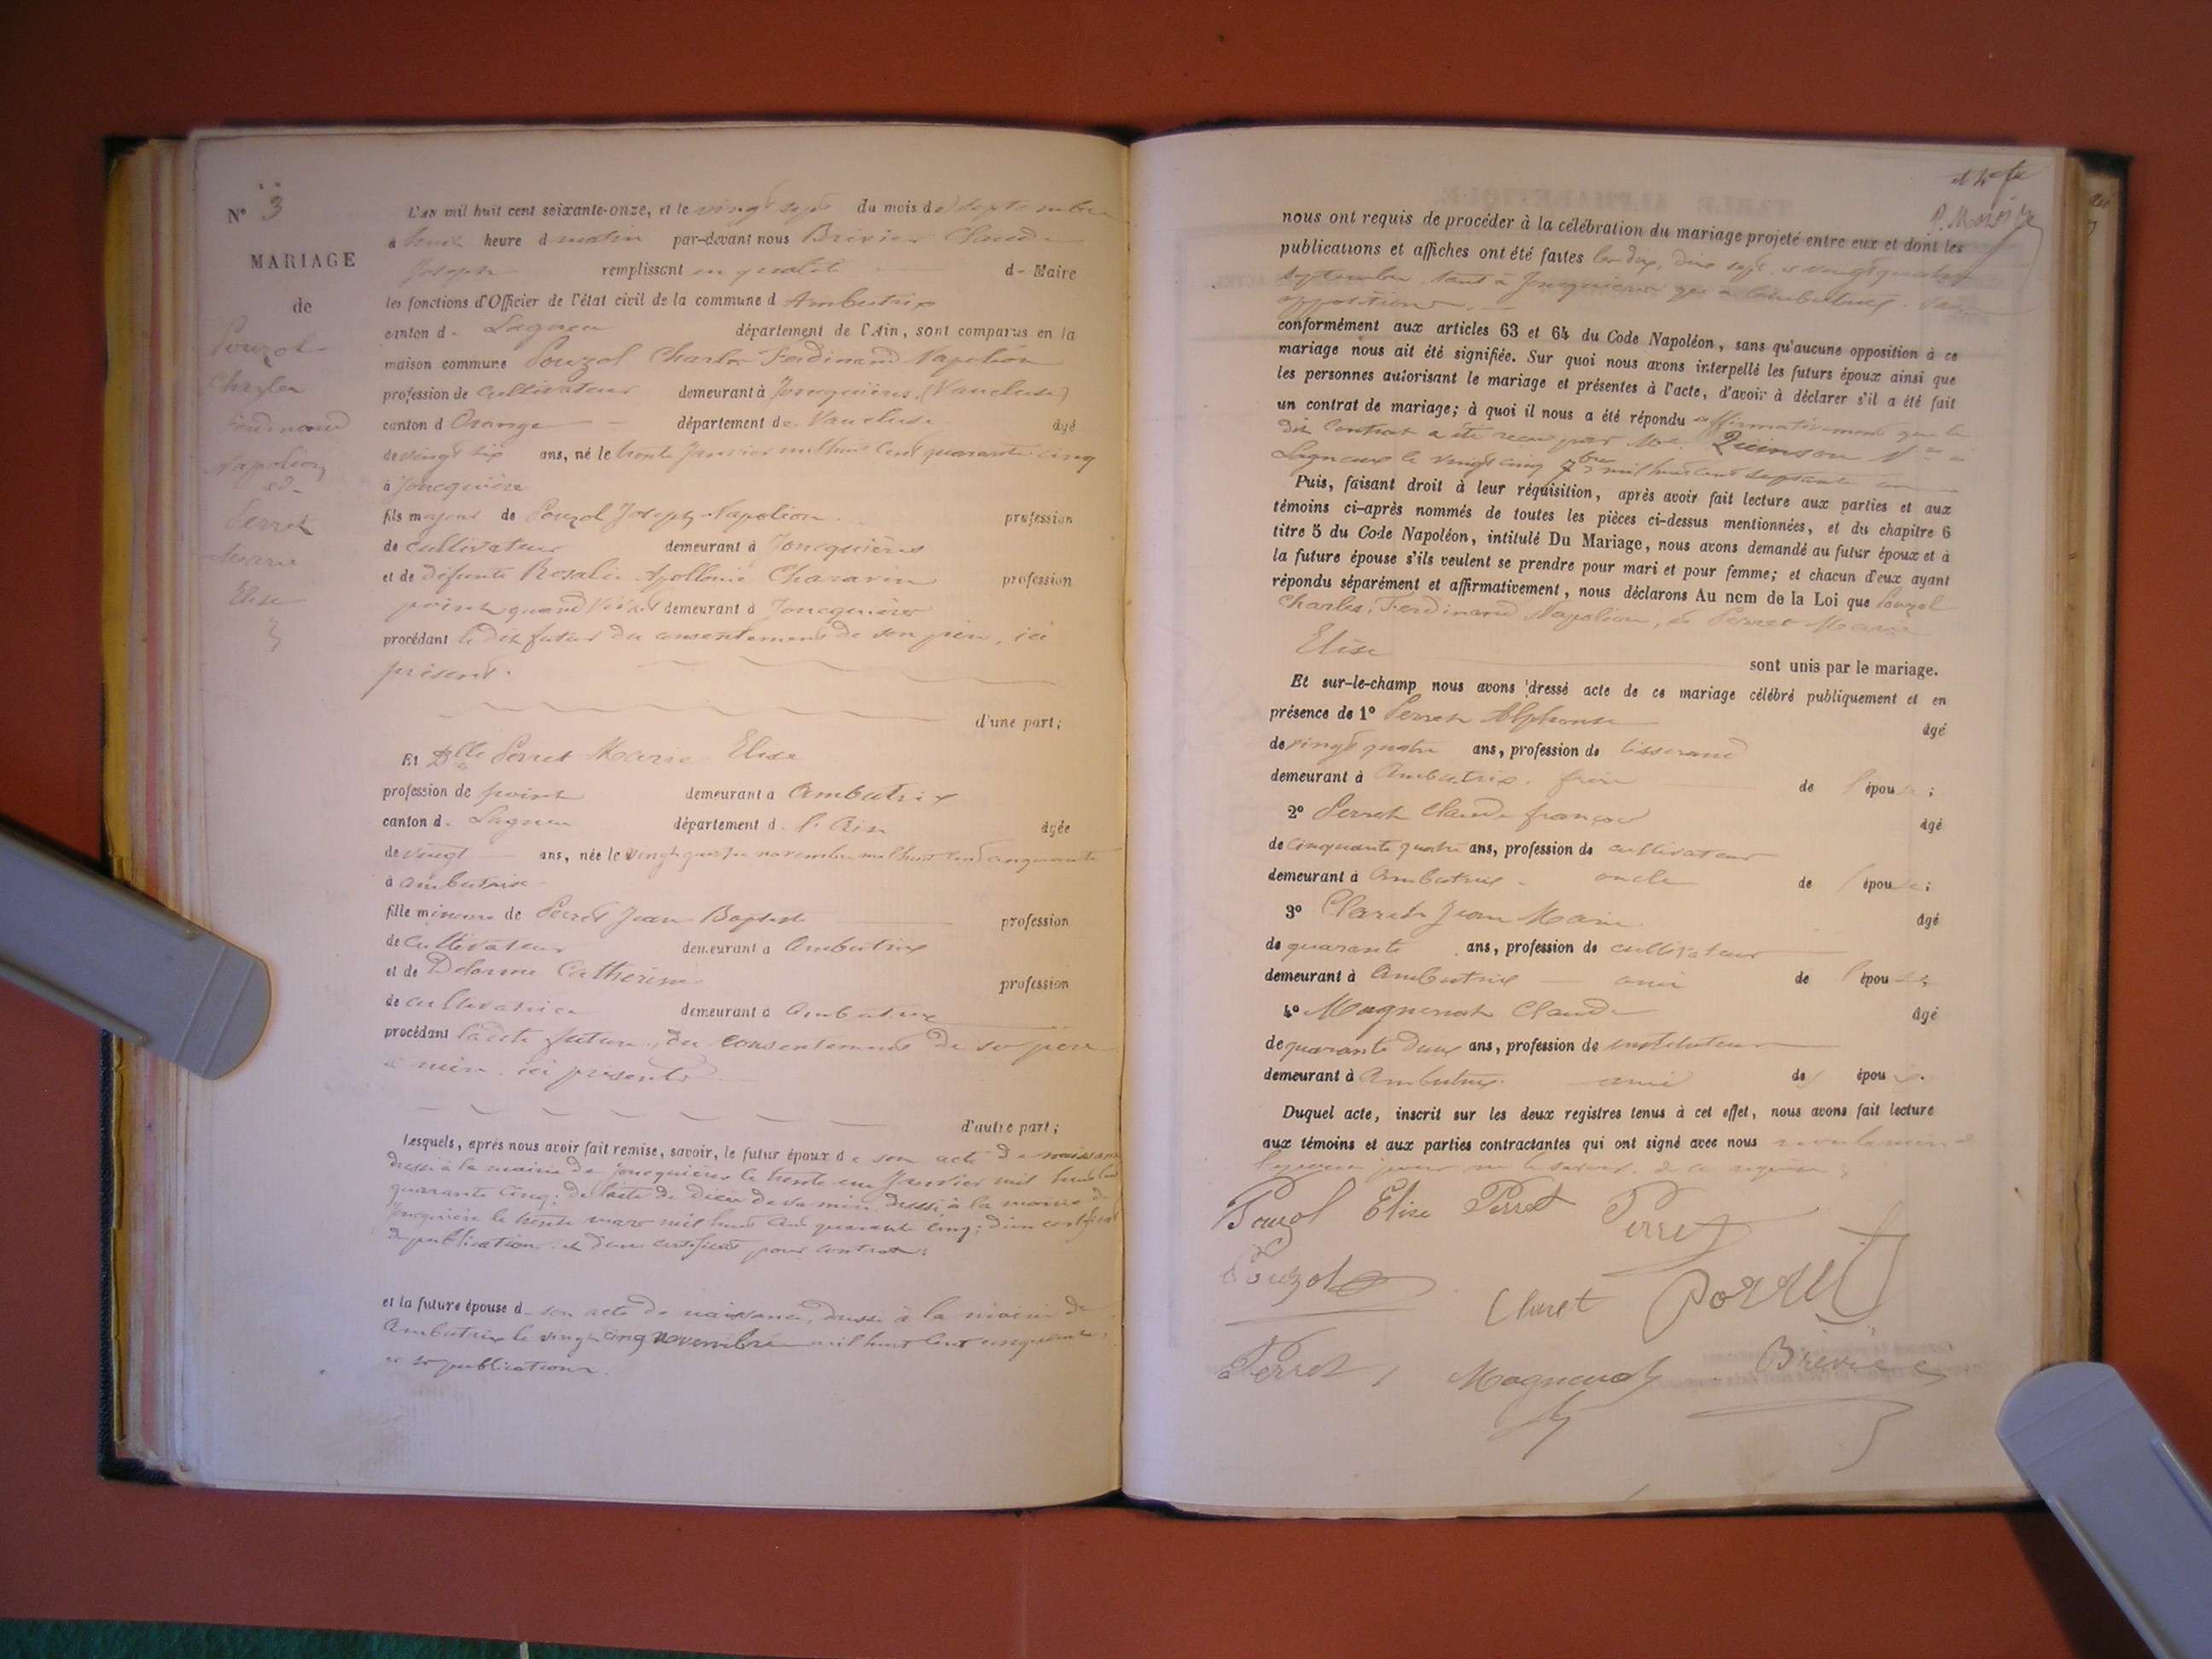 N° 3
MARIAGE
de
Pouzol
Charles
Ferdinand
Napoléon
et
Perret
Marie
Elise
L'an mil huit cent soixante-onze, et le vingt sept du mois de septembre
à huit heure d matin par-devant nous Brévier Claude
Joseph remplissant en qualité d- Maire
les fonctions d'Officier de l'état civil de la commune d Ambutrix
canton d- Lagneu département de l'Ain, sont comparus en la
maison commune Pouzol Charles Ferdinand Napoléon
profession de cultivateur demeurant à Joncquières (Vaucluse)
canton d Orange département de Vaucluse âgé
de vingt six ans, né le trente Janvier mil huit cent quarante cinq
à Joncquière
fils majeur de Pouzol Joseph Napoléon profession
de cultivateur demeurant à Joncquières
et de défunte Rosalie Apollonie Charavin profession
point quand vivait demeurant à Joncquières
procédant le dit futur du consentement de son père, ici
présent.
d'une part;
Et Dlle Perret Marie Elise
profession de point demeurant à Ambutrix
canton d- Lagneu département d- l'Ain âgée
de vingt ans, née le vingt quatre novembre mil huit cent cinquante
à Ambutrix
fille mineure de Perret Jean Baptiste profession
de cultivateur demeurant à Ambutrix
et de Delorme Catherine profession
de cultivatrice demeurant à Ambutrix
procédant la dite future, du consentement de ses père
& mère ici présents
d'autre part;
Lesquels, après nous avoir fait remise, savoir, le futur époux de son acte de naissance
dressé à la mairie de Joncquières le trente un Janvier mil huit cent
quarante cinq; de l'acte de décès de sa mère dressé à la mairie de
Joncquière le trente mars mil huit cent quarante cinq; d'un certificat
de publication et d'un certificat pour contrat;
et la future épouse d- son acte de naissance, dressé à la mairie de
Ambutrix le vingt cinq novembre mil huit cent cinquante,
et ses publications.
nous ont requis de procéder à la célébration du mariage projeté entre eux et dont les
publications et affiches ont été faites les dix, dix sept et vingt quatre
septembre, tant à Joncquières qu'à Ambutrix. sans
opposition
conformément aux articles 63 et 64 du Code Napoléon, sans qu'aucune opposition à ce
mariage nous ait été signifiée. Sur quoi nous avons interpellé les futurs époux ainsi que
les personnes autorisant le mariage et présentes à l'acte, d'avoir à déclarer s'il a été fait
un contrat de mariage; à quoi il nous a été répondu affirmativement que le
dit Contrat a été reçu par Me Quinson Nre à
Lagneux le vingt cinq 7bre mil huit cent septante un
Puis, faisant droit à leur réquisition, après avoir fait lecture aux parties et aux
témoins ci-après nommés de toutes les pièces ci-dessus mentionnées, et du chapitre 6
titre 5 du Code Napoléon, intitulé Du Mariage, nous avons demandé au futur époux et à
la future épouse s'ils veulent se prendre pour mari et pour femme; et chacun d'eux ayant
répondu séparément et affirmativement, nous déclarons Au nom de la Loi que Pouzol
Charles, Ferdinand Napoléon, et Perret Marie
Elise
sont unis par le mariage.
Et sur-le-champ nous avons dressé acte de ce mariage célébré publiquement et en
présence de 1° Perret Alphonse âgé
de vingt quatre ans, profession de tisserand
demeurant à Ambutrix. frère de l'épouse;
2° Perret Claude françois âgé
de cinquante quatre ans, profession de cultivateur
demeurant à Ambutrix - oncle de l'épouse;
3° Claret Jean Marie âgé
de quarante ans, profession de cultivateur
demeurant à Ambutrix ami de l'épouse;
4° Magnenot Claude âgé
de quarante deux ans, profession de instituteur
demeurant à Ambutrix. ami des époux.
Duquel acte, inscrit sur les deux registres tenus à cet effet, nous avons fait lecture
aux témoins et aux parties contractantes qui ont signé avec nous
pour ne le savoir. de ce requise
Pouzol Elise Perret Perret
Pouzol
Claret Perret
Perret Magnenot Brévier